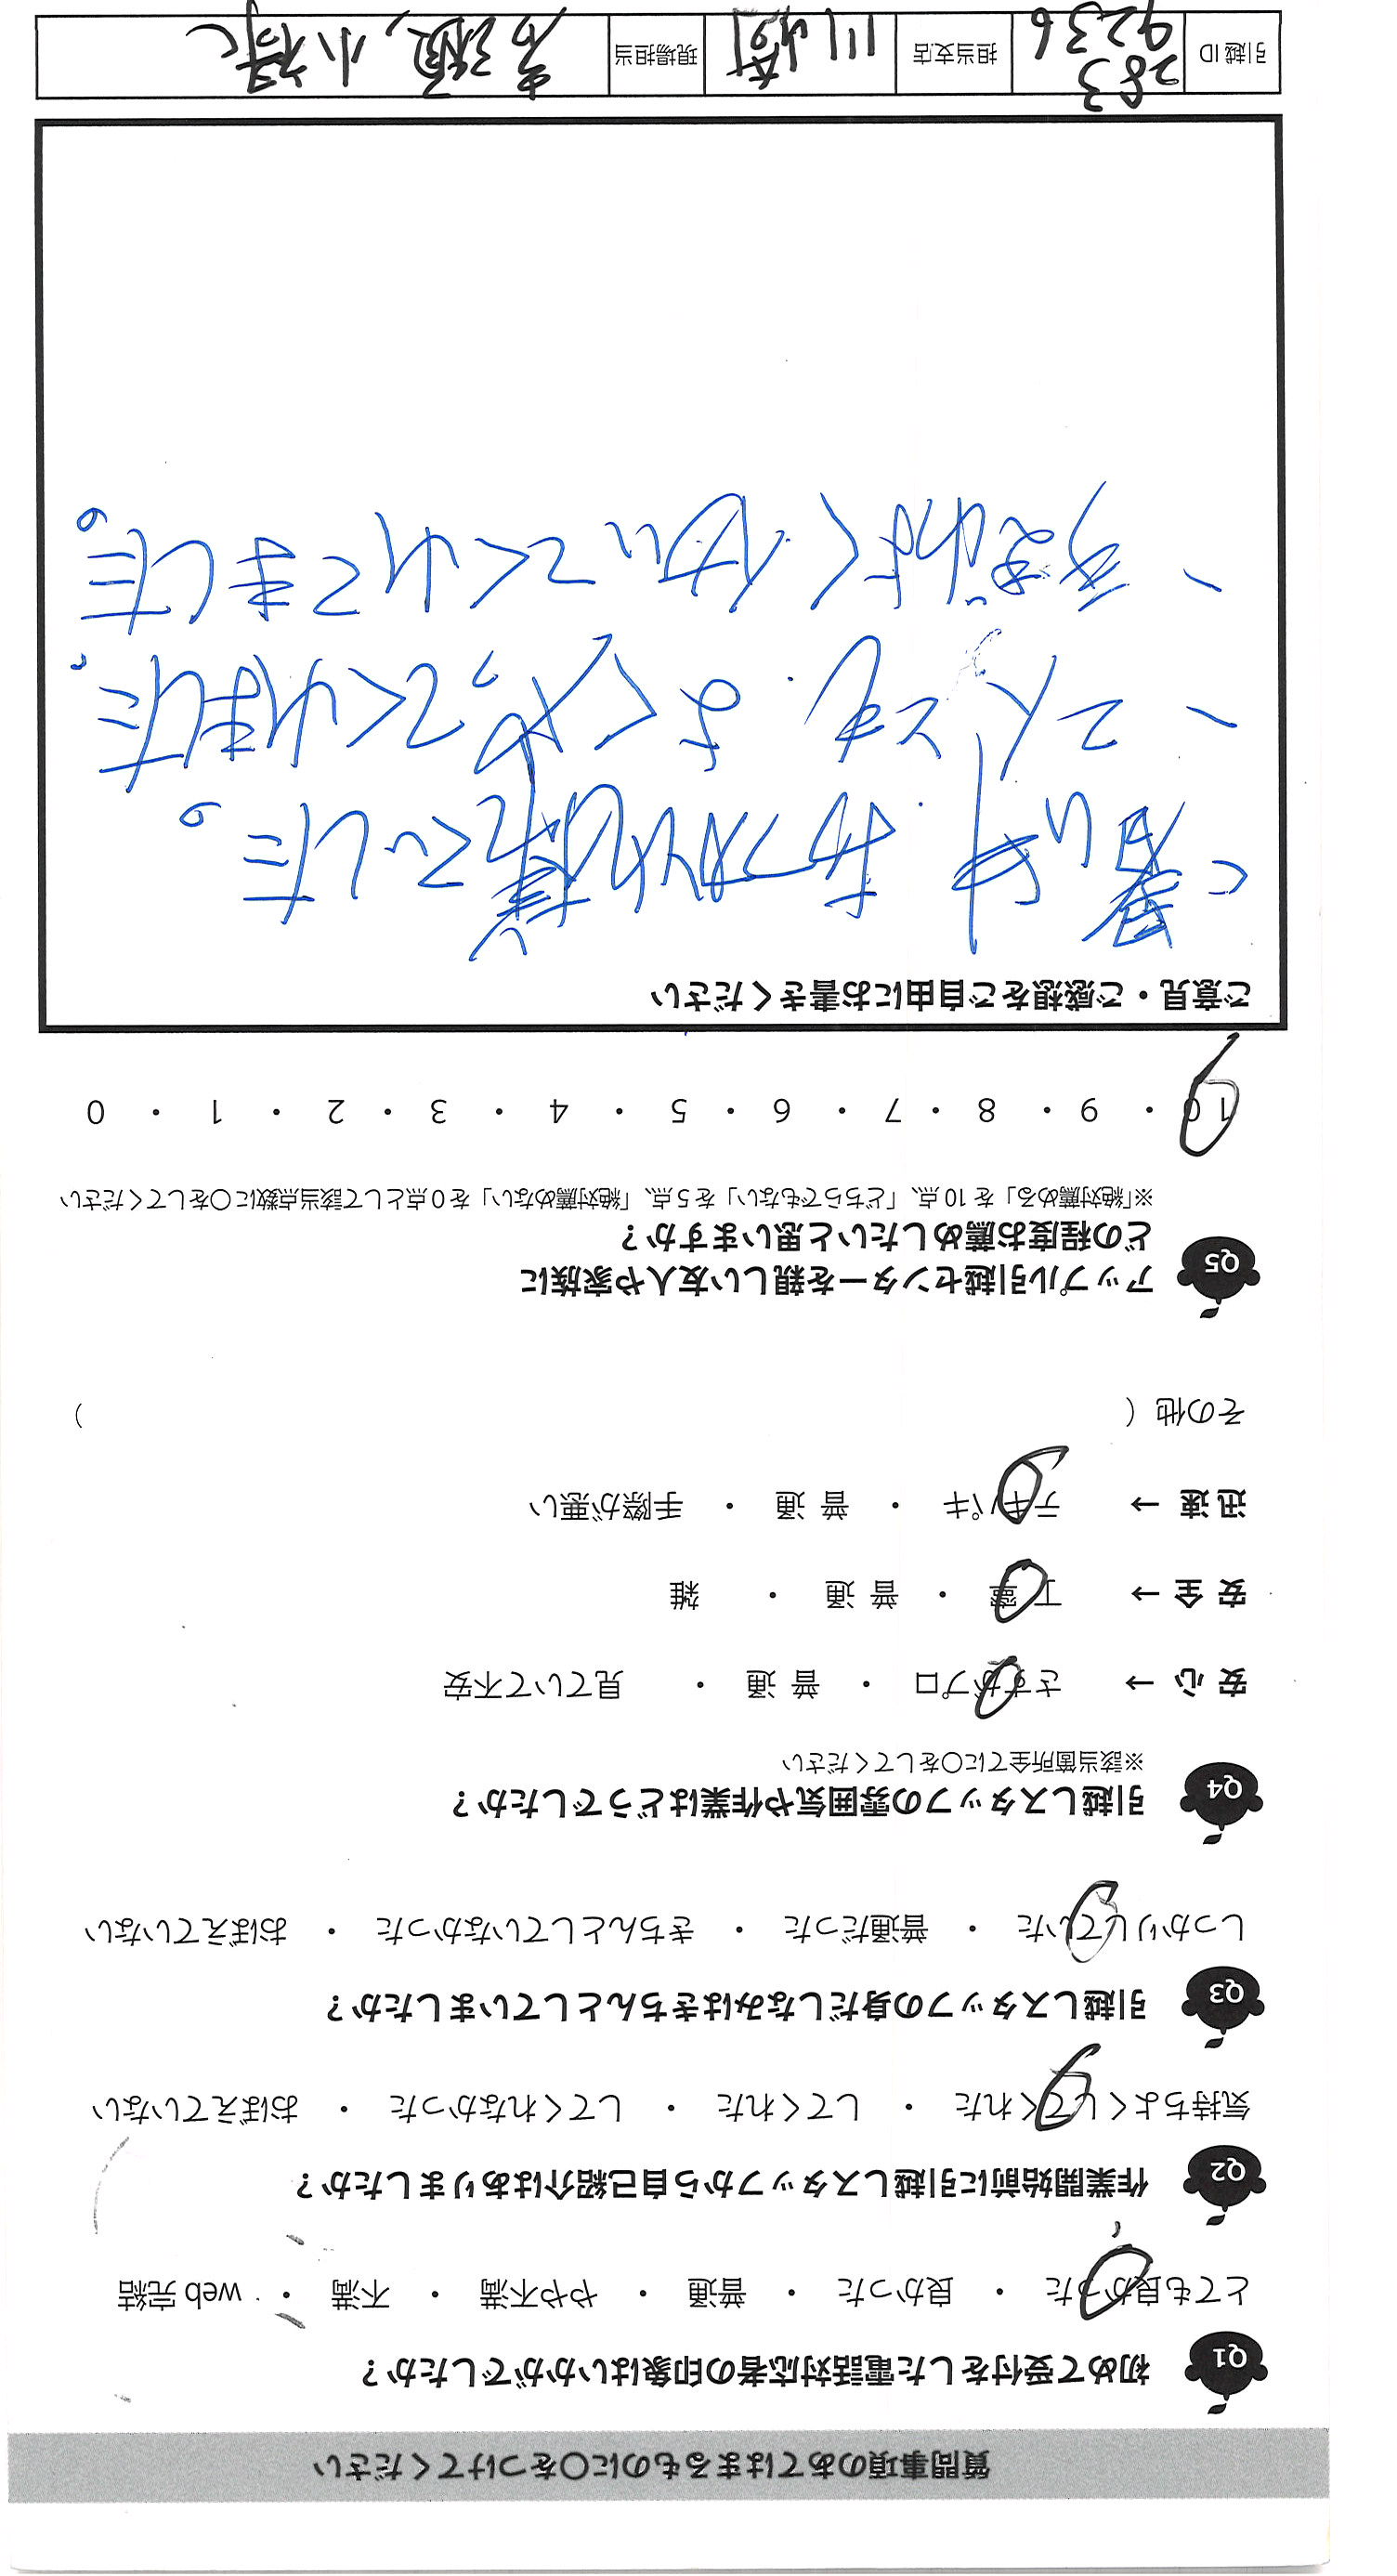 質問事項のあてはまるものに〇をつけてください
Q1 初めて受付をした電話対応者の印象はいかがでしたか？
とても良かった ・ 良かった ・ 普通 ・ やや不満 ・ 不満 ・ web 完結
Q2 作業開始前に引越しスタッフから自己紹介はありましたか？
気持ちよくしてくれた ・ してくれた ・ してくれなかった ・ おぼえていない
Q3 引越しスタッフの身だしなみはきちんとしていましたか？
しっかりしていた ・ 普通だった ・ きちんとしていなかった ・ おぼえていない
Q4 引越しスタッフの雰囲気や作業はどうでしたか？
※該当箇所全てに〇をしてください
安 心 → さすがプロ ・ 普 通 ・ 見ていて不安
安 全 → 丁寧 ・ 普 通 ・ 雑
迅 速 → テキパキ ・ 普 通 ・ 手際が悪い
その他（ ）
Q5 アップル引越センターを親しい友人や家族に
どの程度お薦めしたいと思いますか？
※「絶対薦める」を 10 点、「どちらでもない」を 5 点、「絶対薦めない」を 0 点として該当点数に〇をしてください
10 ・ 9 ・ 8 ・ 7 ・ 6 ・ 5 ・ 4 ・ 3 ・ 2 ・ 1 ・ 0
ご意見・ご感想をご自由にお書きください
よくやってくれました。
くれました。
引越 ID 283 9236 担当支店 川崎 現場担当